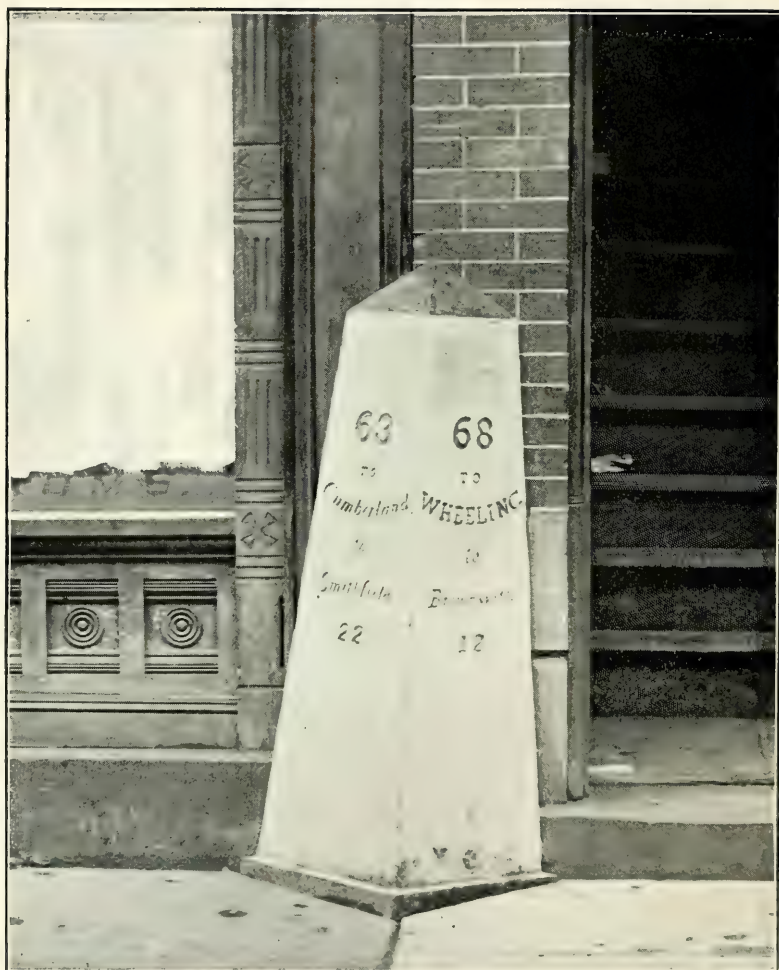 63
to
Cumberland
to
Smithfield
22
68
TO
WHEELING
to
Brownsville
12